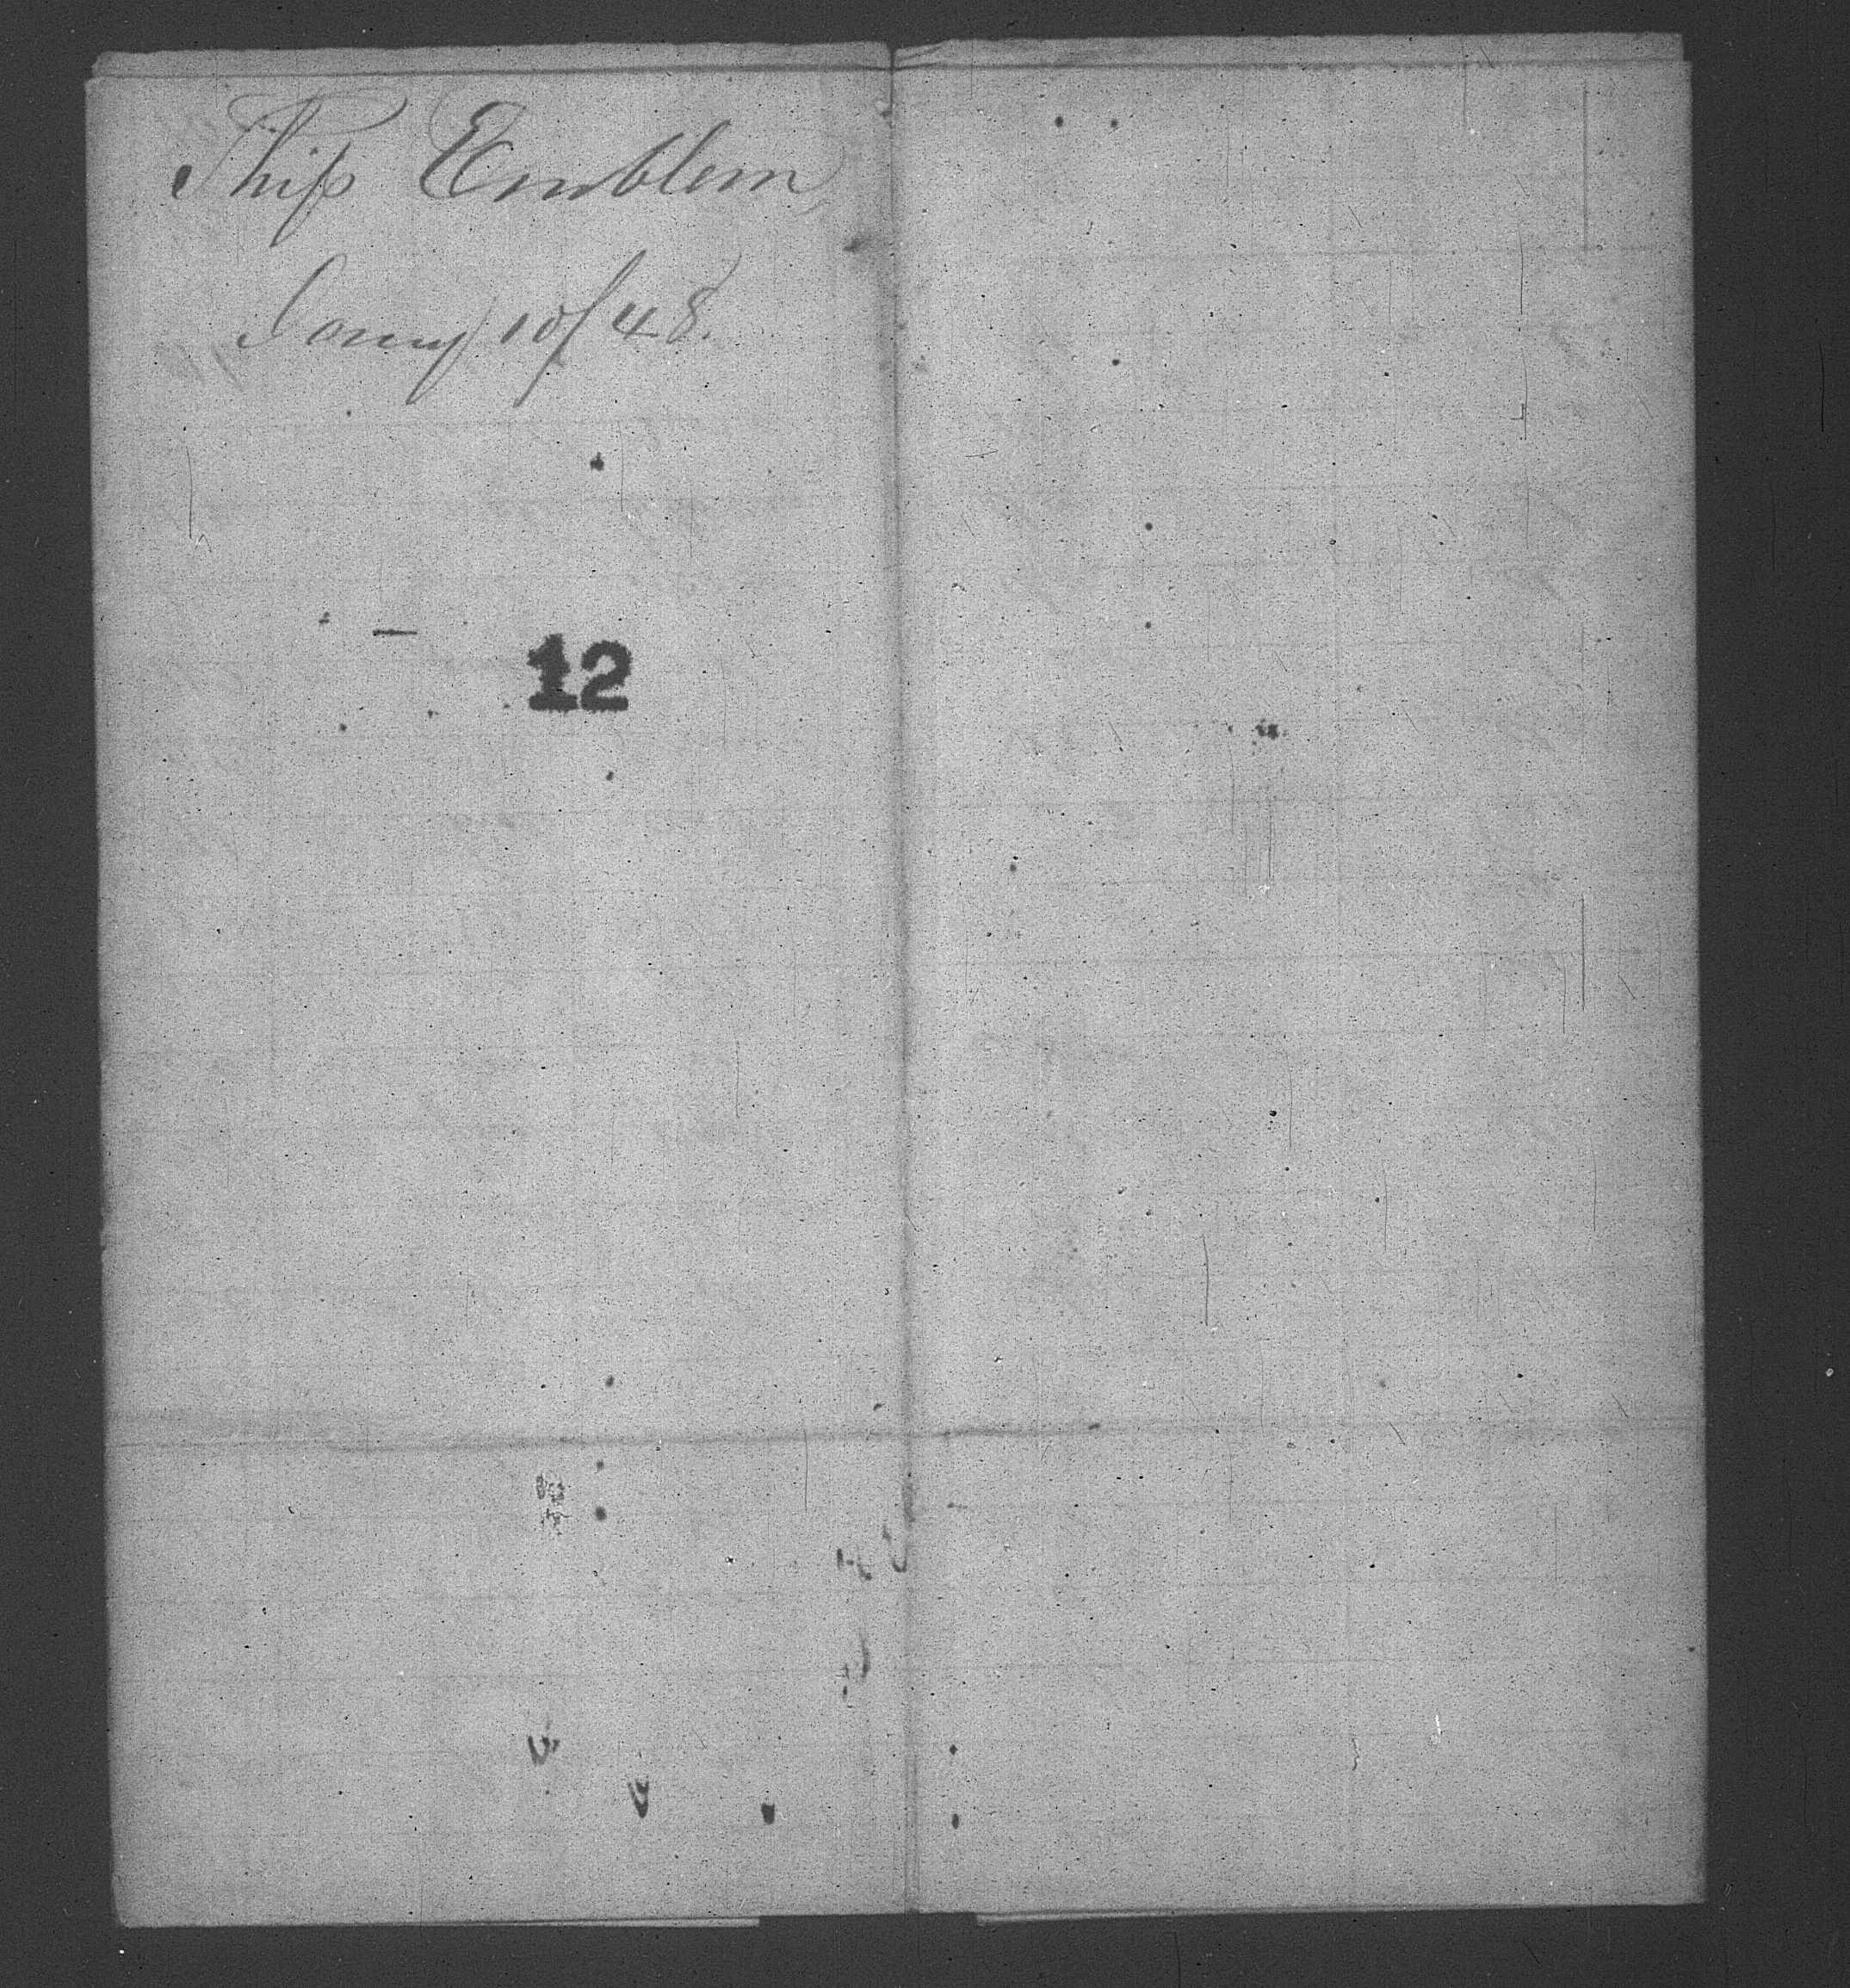 Ship Emblem
Jany 10/48.
12